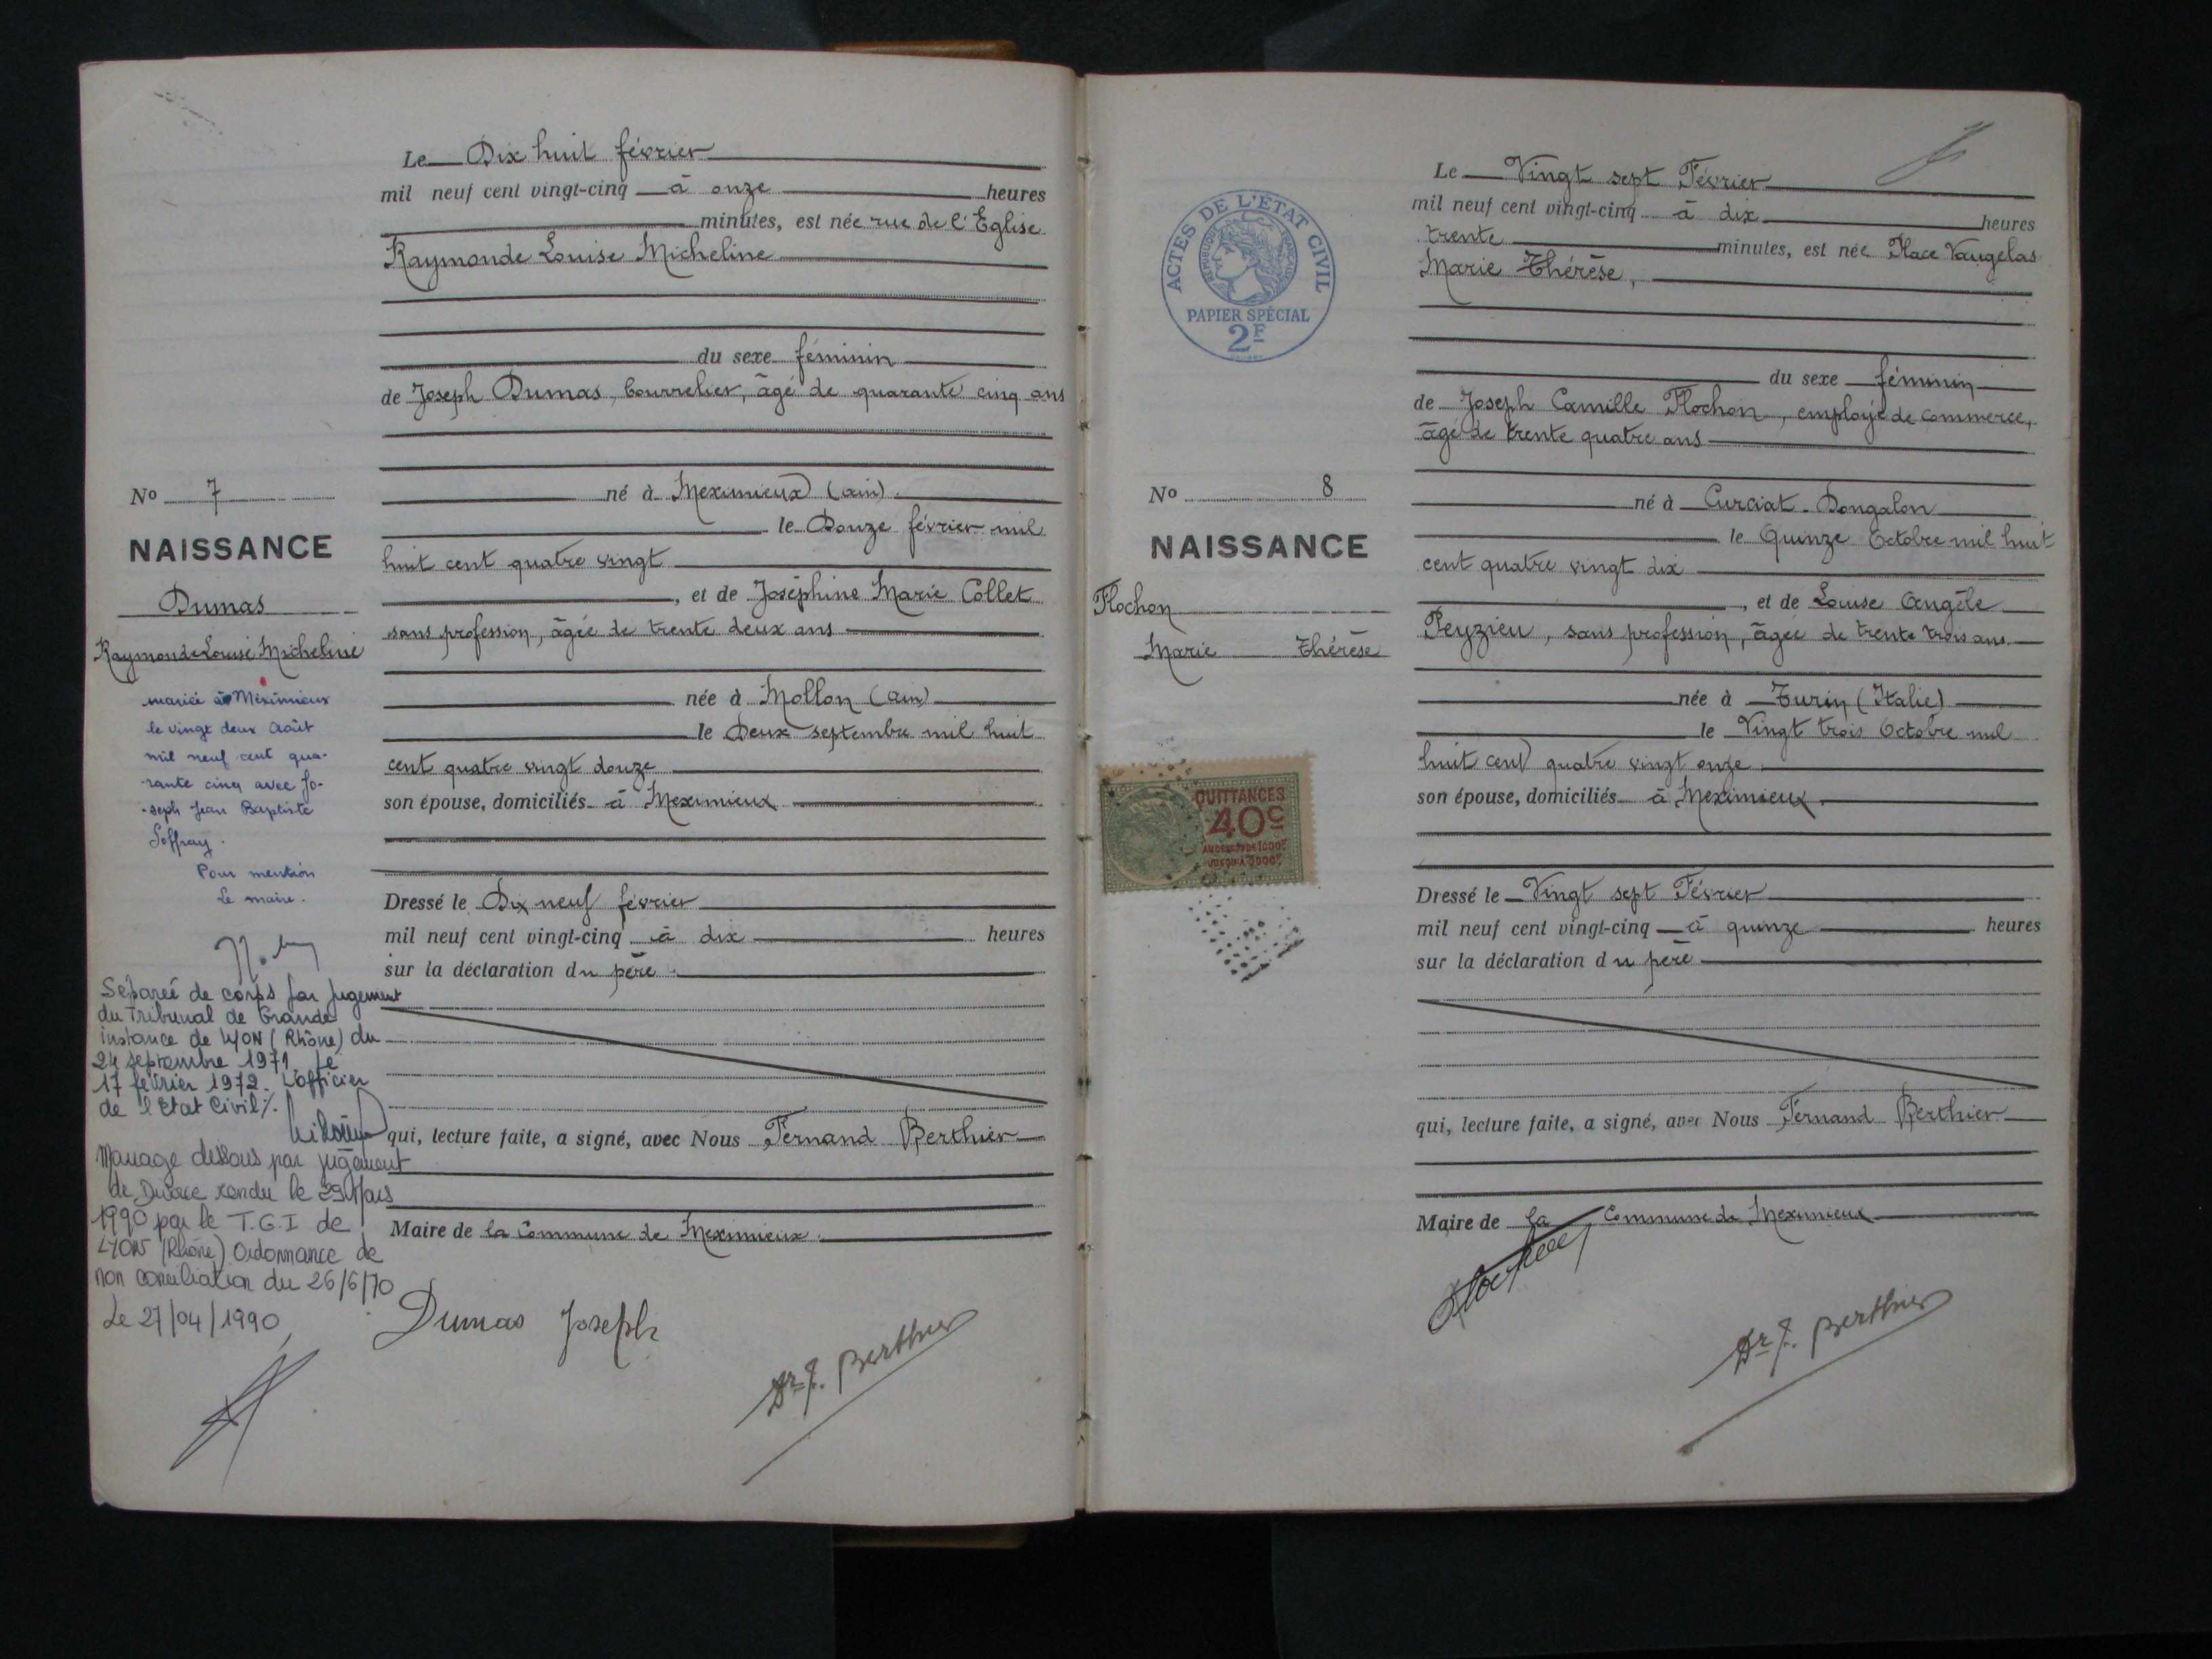 Le Dix huit février
mil neuf cent vingt-cinq à onze heures
minutes, est née rue de l'Eglise
Raymonde Louise Micheline
du sexe féminin
de Joseph Dumas, Bourrelier, âgé de quarante cinq ans
né à Meximieux (ain).
le Douze février mil
huit cent quatre vingt
, et de Joséphine Marie Collet
sans profession, âgée de trente deux ans
née à Mollon (ain)
le Deux septembre mil huit
cent quatre vingt douze
son épouse, domiciliés à Meximieux
Dressé le Dix neuf février
mil neuf cent vingt-cinq à dix heures
sur la déclaration du père.
qui, lecture faite, a signé, avec Nous Fernand Berthier
Maire de la Commune de Meximieux.
Dumas Joseph
Dr F. Berthier
No 7
NAISSANCE
Dumas
Raymonde Louise Micheline
mariée à Méximieux
le vingt deux Août
mil neuf cent qua-
-rante cinq avec Jo-
-seph Jean Baptiste
Soffray.
Pour mention
Le maire.
Séparée de corps par jugement
du Tribunal de Grande
instance de LYON (Rhône) du
24 septembre 1971. Le
17 février 1972. L'officier
de l'Etat Civil/.
Mariage dissous par jugement
de Divorce rendu le 29 Mars
1990 par le T.G.I de
LYON (Rhône) Ordonnance de
non conciliation du 26/6/70
Le 27/04/1990
Le Vingt sept Février
mil neuf cent vingt-cinq à dix heures
trente minutes, est née Place Vaugelas
Marie Thérèse,
du sexe féminin
de Joseph Camille Flochon, employé de commerce,
âgé de trente quatre ans
né à Curciat-Dongalon
le Quinze Octobre mil huit
cent quatre vingt dix
, et de Louise Angèle
Peyzieu, sans profession, âgée de trente trois ans.
née à Turin (Italie)
le Vingt trois Octobre mil
huit cent quatre vingt onze.
son épouse, domiciliés à Meximieux.
Dressé le Vingt sept Février
mil neuf cent vingt-cinq à quinze heures
sur la déclaration du père
qui, lecture faite, a signé, avec Nous Fernand Berthier
Maire de la Commune de Meximieux
Flochon
Dr F. Berthier
ACTES DE L'ÉTAT CIVIL
RÉPUBLIQUE FRANÇAISE
PAPIER SPÉCIAL
2F
No 8
NAISSANCE
Flochon
Marie Thérèse
QUITTANCES
40c
AU DESSUS DE 1000F
JUSQU'À 3000F